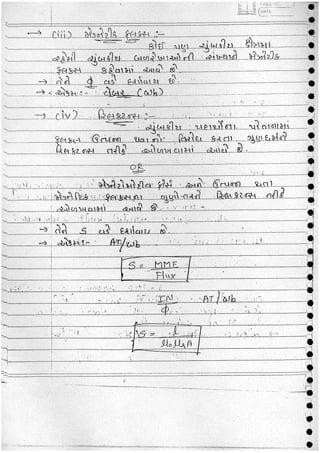 → (iii) મેગ્નેટીક ફ્લક્સ :-
કોઈ પણ ચુંબકીય ક્ષેત્રમાં
રહેલી ચુંબકીય બળરેખાઓની સંખ્યાને મેગ્નેટીક
ફ્લક્સ કહેવામાં આવે છે.
→ તેને ϕ વડે દર્શાવાય છે
→ એકમ :- વેબર (Wb)
→ (iv) રિલક્ટન્સ :-
ચુંબકીય પદાર્થોના પોતાનામાં
ફ્લક્સ ઉત્પન્ન થવાનો વિરોધ કરતા ગુણધર્મને
રિલક્ટન્સ તરીકે ઓળખવામાં આવે છે.
OR
મેગ્નેટોમોટીવ ફોર્સ અને ઉત્પન્ન થતા
મેગ્નેટિક ફ્લક્સના ગુણોત્તરને રિલક્ટન્સ તરીકે
ઓળખવામાં આવે છે
→ તેને S વડે દર્શાવાય છે.
→ એકમ:- AT/Wb
S = MME
Flux
IN AT/Wb
ϕ
S = l
μ₀μᵣA